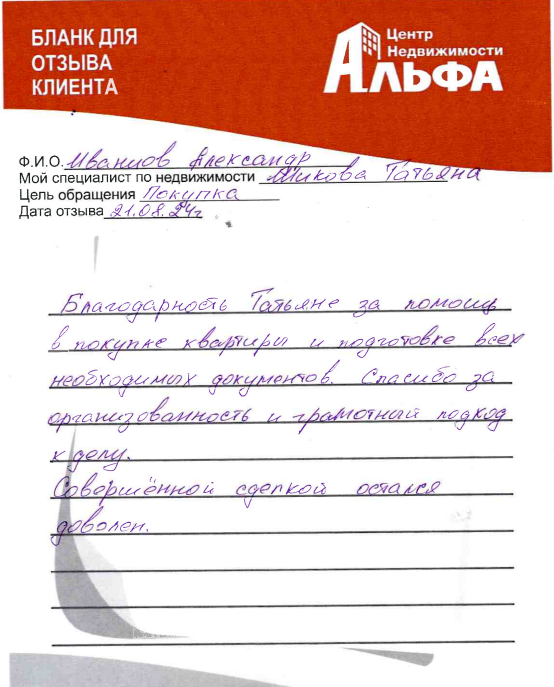 БЛАНК ДЛЯ
ОТЗЫВА
КЛИЕНТА
Центр
Недвижимости
АЛЬФА
Ф.И.О. Иванцов Александр
Мой специалист по недвижимости Микова Татьяна
Цель обращения Покупка
Дата отзыва 21.08.24г
Благодарность Татьяне за помощь
в покупке квартиры и подготовке всех
необходимых документов. Спасибо за
организованность и грамотный подход
к делу.
Совершённой сделкой остался
доволен.